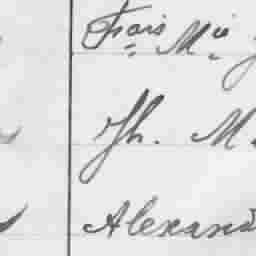 Frois Mie
Jh. M.
Alexand